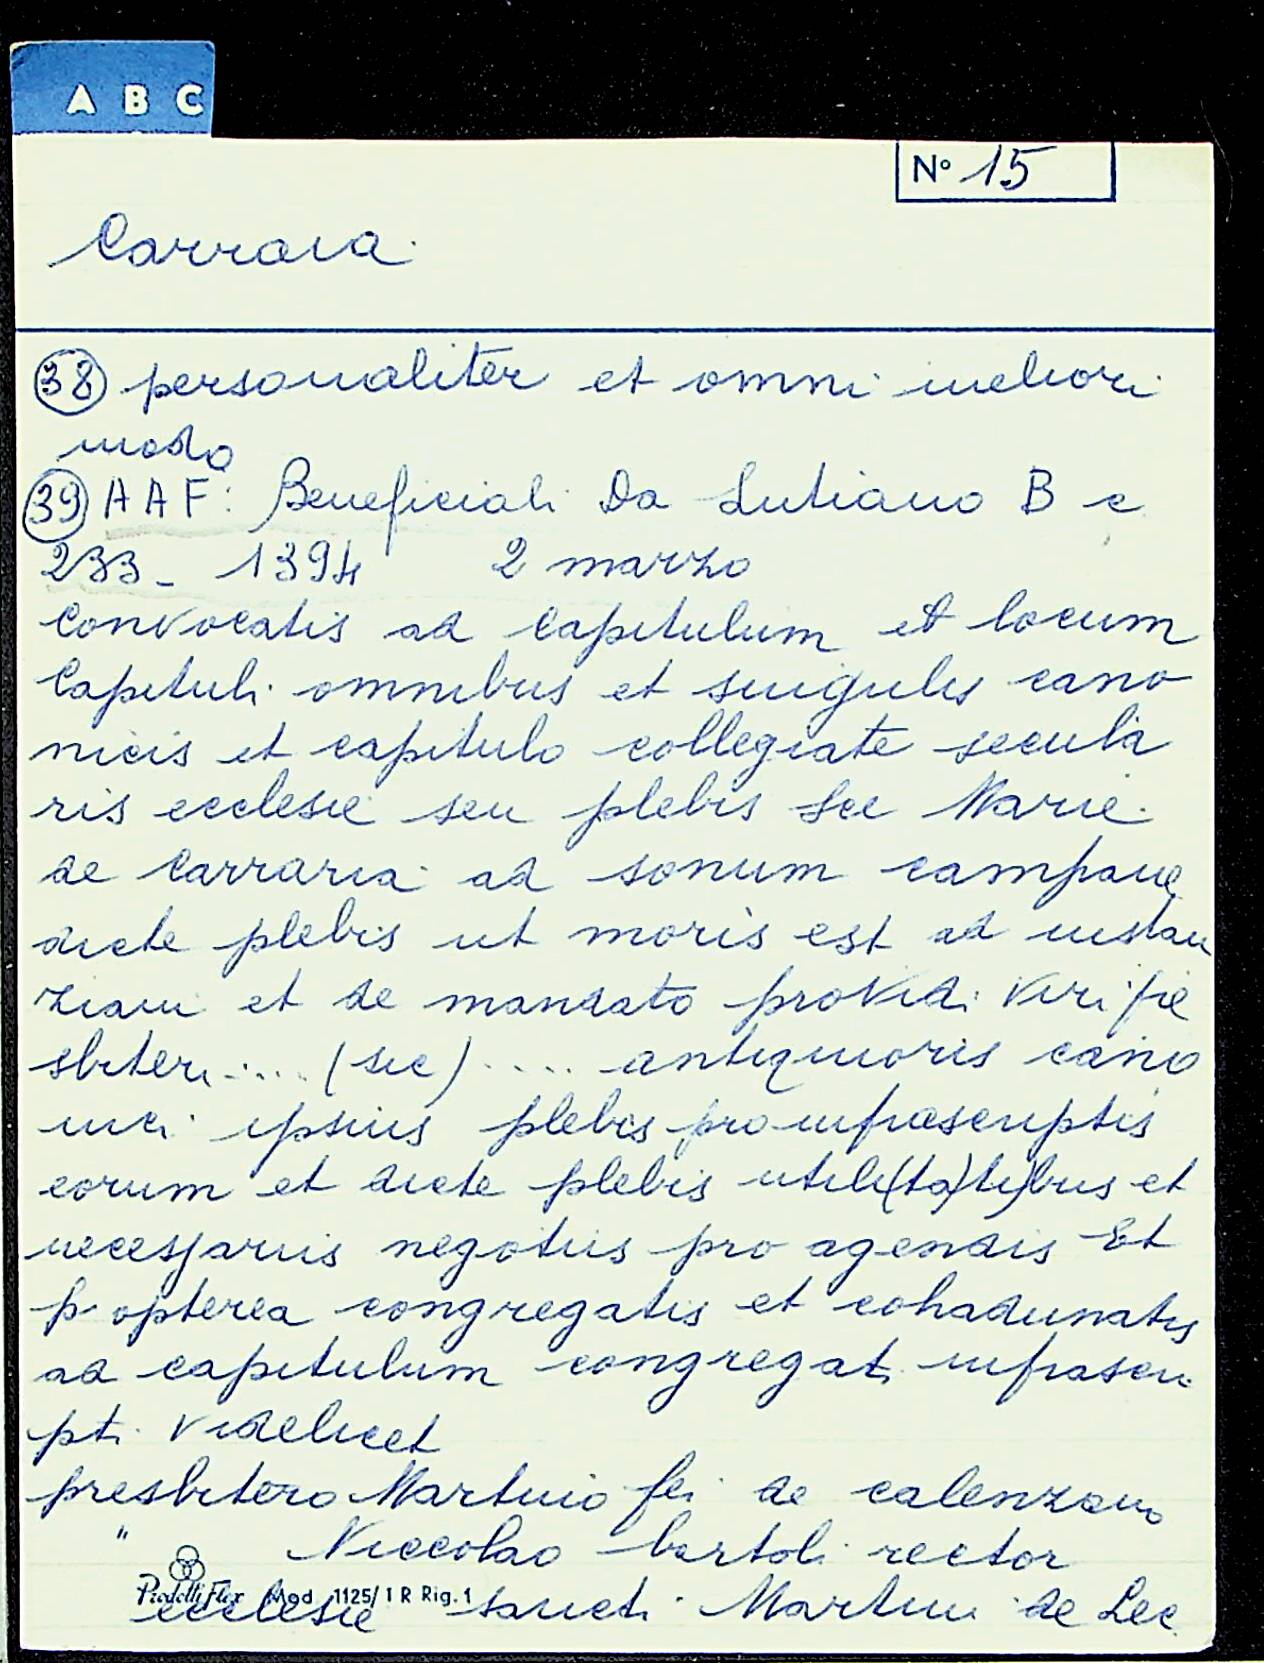 A B C
Nº 15
Carraia
38 personaliter et omni meliori
modo
39 AAF: Beneficiali Da Lutiano B c
233 - 1394 2 marzo
Convocatis ad capitulum et locum
Capituli omnibus et singulis cano
nicis et capitulo collegiate secula
ris ecclesie seu plebis Sce Marie
de Carraria ad sonum campane
dicte plebis ut moris est ad instan
ziam et de mandato providi viri pre
sbiteri..... (sic) .... antiquioris cano
nici ipsius plebis pro infrascriptis
eorum et dicte plebis utili(ta)ti)bus et
necessariis negotiis pro agendis Et
propterea congregatis et cohadunatis
ad capitulum congregati infrascri
pti videlicet
presbitero Martino fei de calenzano
" Niccolao bartoli rector
Mod. 1125/1 R Rig. 1
ecclesie sancti Martini de Lec